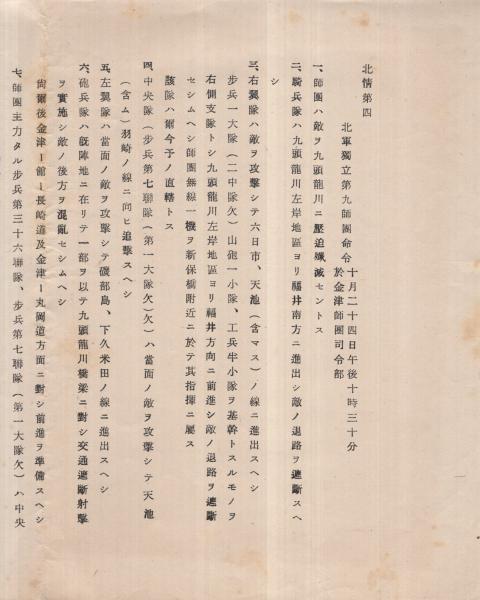 北情第四
北軍獨立第九師團命令
十月二十四日午後十時三十分
於金津師團司令部
一、師團ハ敵ヲ九頭龍川ニ壓迫殲滅セントス
二、騎兵隊ハ九頭龍川左岸地區ヨリ福井南方ニ進出シ敵ノ退路ヲ遮斷スヘ
シ
三、右翼隊ハ敵ヲ攻擊シテ六日市、天池(含マス)ノ線ニ進出スヘシ
步兵一大隊(二中隊欠)山砲一小隊、工兵半小隊ヲ基幹トスルモノヲ
右側支隊トシ九頭龍川左岸地區ヨリ福井方向ニ前進シ敵ノ退路ヲ遮斷
セシムヘシ師團無線一機ヲ新保橋附近ニ於テ其指揮ニ屬ス
該隊ハ爾今予ノ直轄トス
四、中央隊(步兵第七聯隊(第一大隊欠)欠)ハ當面ノ敵ヲ攻擊シテ天池
(含ム)羽崎ノ線ニ向ヒ追擊スヘシ
五、左翼隊ハ當面ノ敵ヲ攻擊シテ磯部島、下久米田ノ線ニ進出スヘシ
六、砲兵隊ハ既陣地ニ在リテ一部ヲ以テ九頭龍川橋梁ニ對シ交通遮斷射擊
ヲ實施シ敵ノ後方ヲ混亂セシムヘシ
尙爾後金津ー館ー長崎道及金津ー丸岡道方面ニ對シ前進ヲ準備スヘシ
七、師團主力タル步兵第三十六聯隊、步兵第七聯隊(第一大隊欠)ハ中央